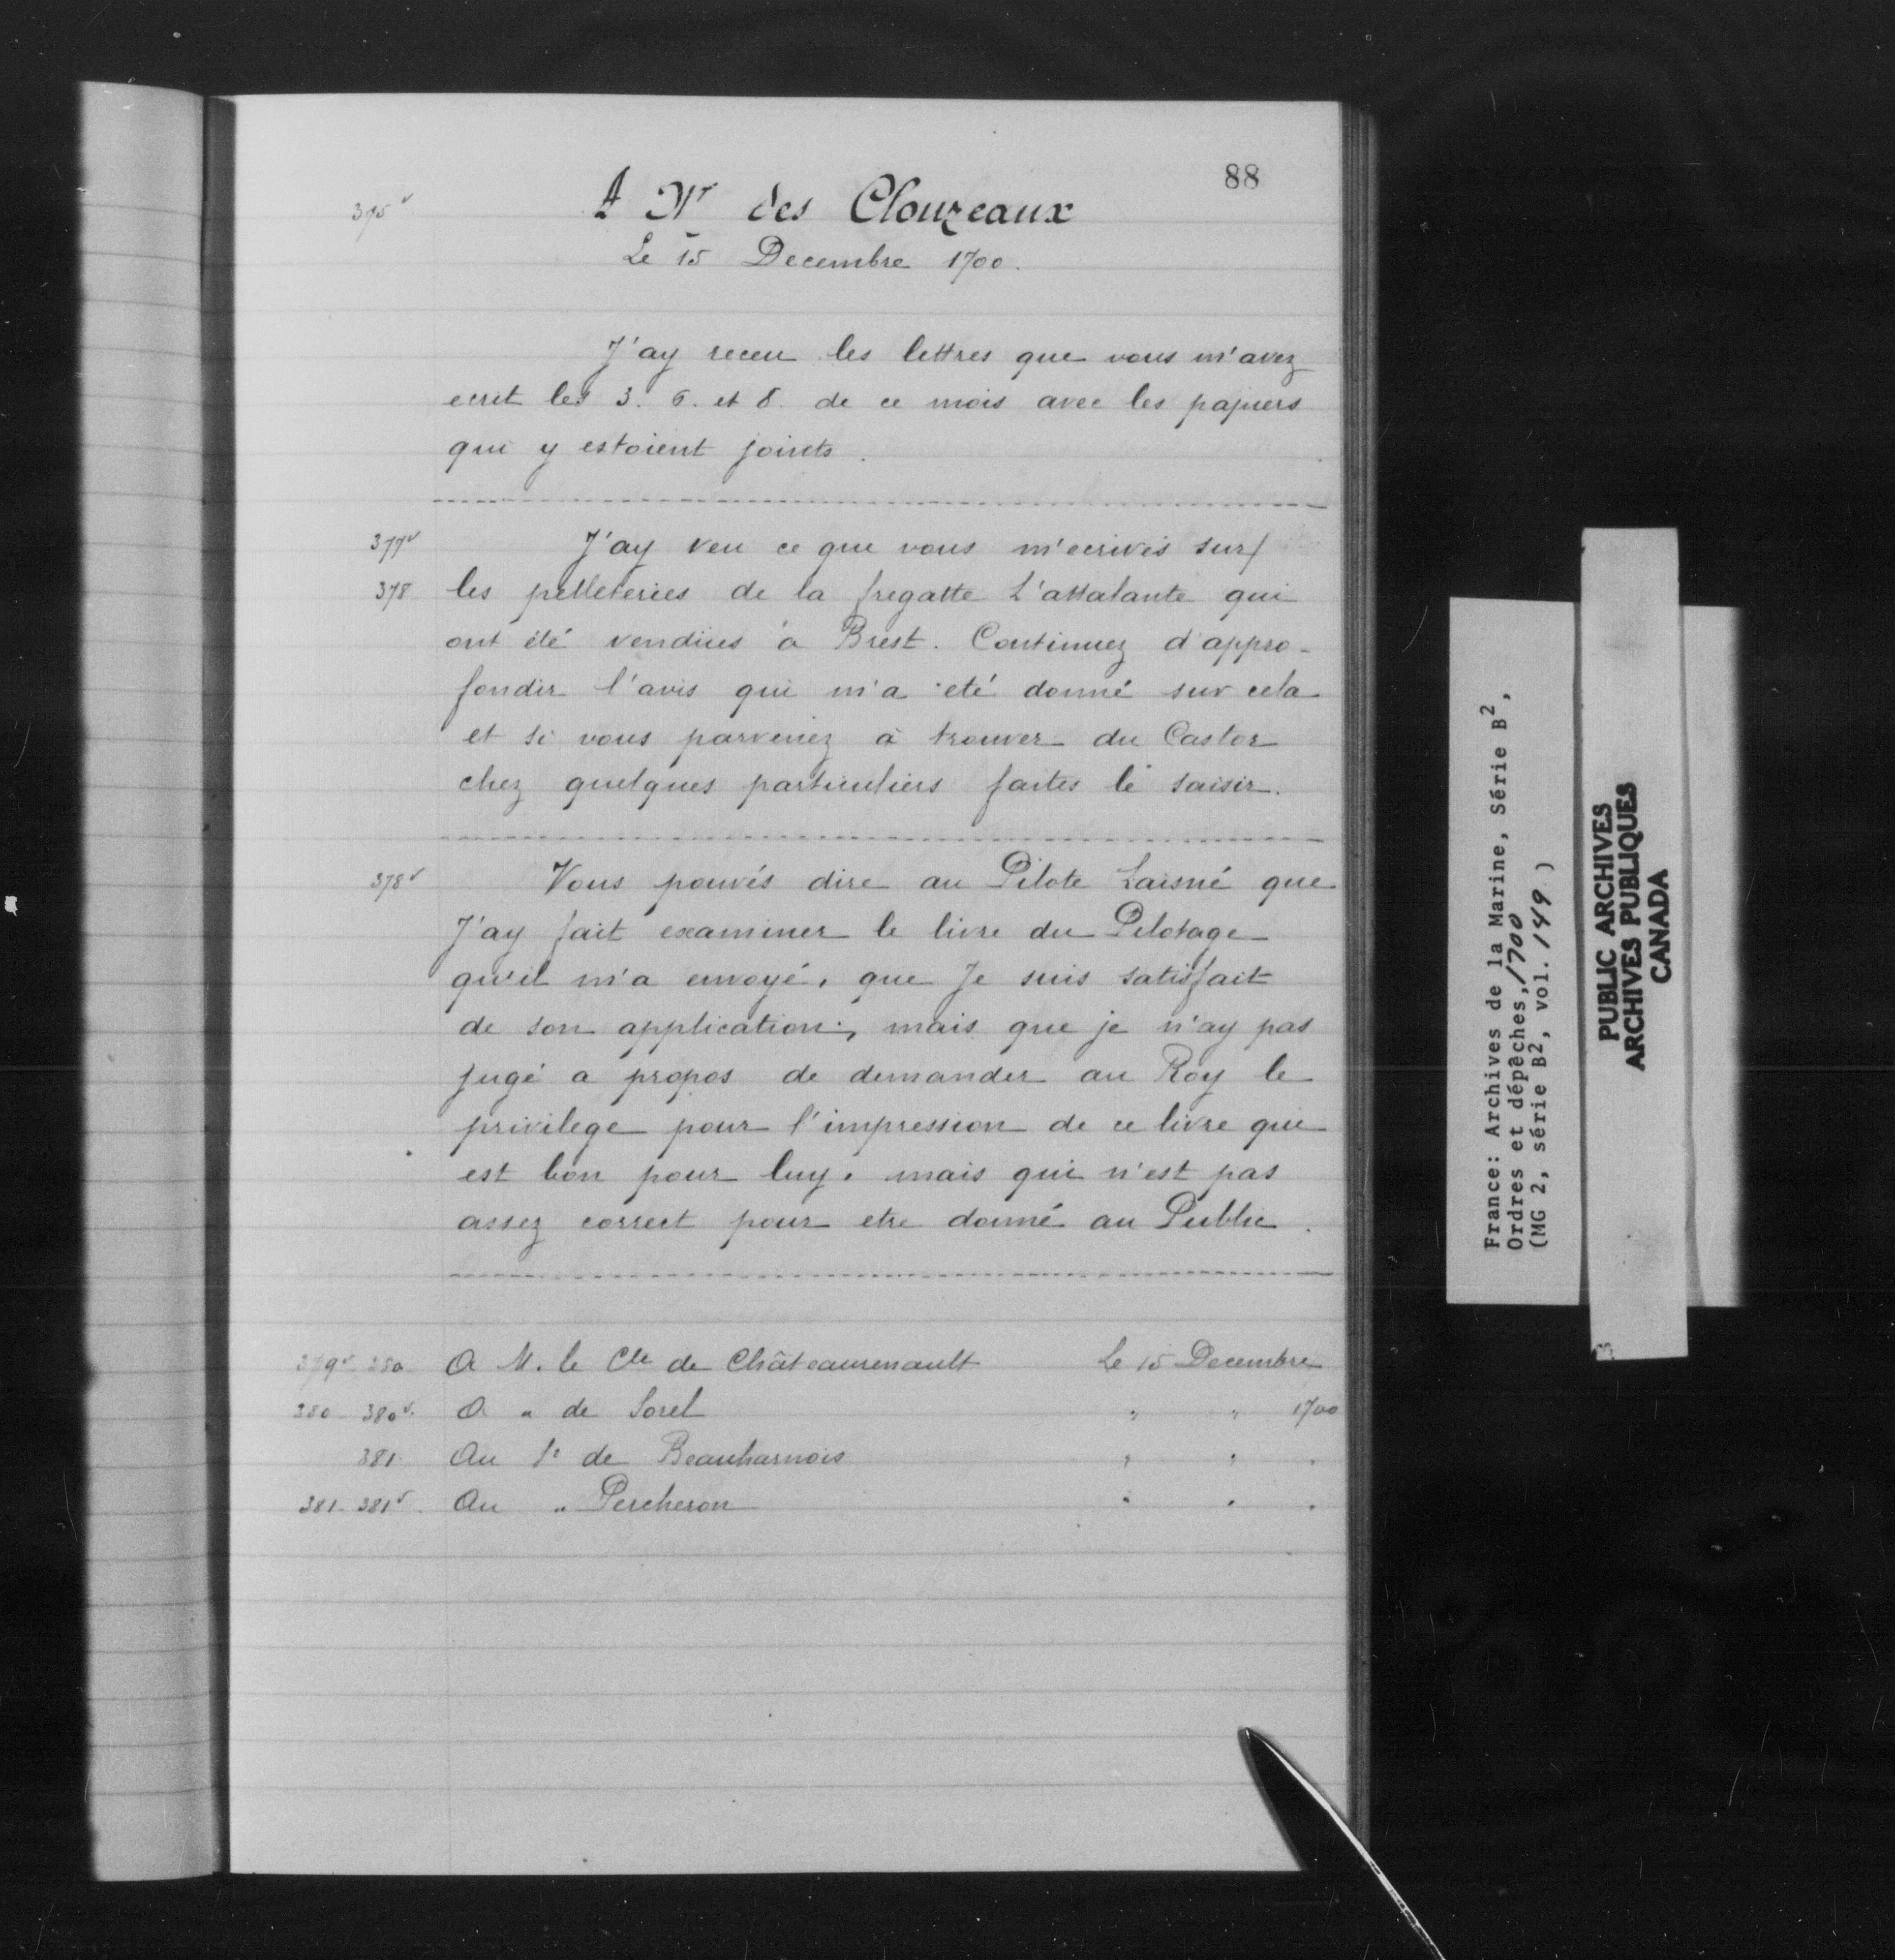 88
375v A Mr des Clouzeaux
Le 15 Decembre 1700.
J'ay receu les lettres que vous m'avez
ecrit les 3. 6. et 8. de ce mois avec les papiers
qui y estoient joints.
377v J'ay veu ce que vous m'ecrivés sur
378 les pelleteries de la fregatte L'attalante qui
ont été vendues à Brest. Continuez d'appro-
fondir l'avis qui m'a eté donné sur cela
et si vous parvenez à trouver du Castor
chez quelques particuliers faites le saisir.
378v Vous pouvés dire au Pilote Laisné que
J'ay fait examiner le livre du Pilotage
qu'il m'a envoyé, que Je suis satisfait
de son application, mais que je n'ay pas
jugé a propos de demander au Roy le
privilege pour l'impression de ce livre qui
est bon pour luy. mais qui n'est pas
assez correct pour etre donné au Public.
379v 380 A M. le Cte de Châteaurenault Le 15 Decembre
380 - 380v. A " de Sorel " " 1700
381 Au Sr de Beauharnois " " "
381 - 381v. Au " Percheron " " "
France: Archives de la Marine, Série B2,
Ordres et dépêches, 1700
(MG 2, série B2, vol. 149)
PUBLIC ARCHIVES
ARCHIVES PUBLIQUES
CANADA